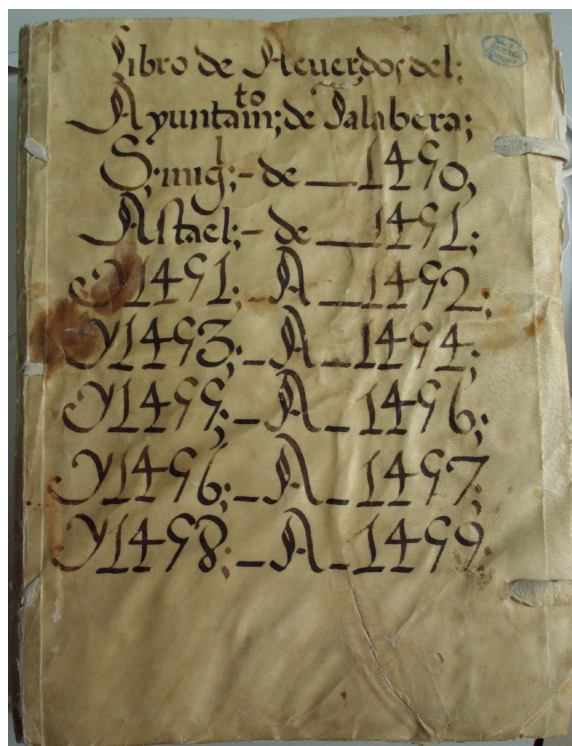 Libro de Acuerdos del;
Ayuntamto; de Talabera;
S; migl; - de — 1490,
Astael; - de — 1491;
Y1491; - A - 1492;
Y1493; - A - 1494;
Y1495; - A - 1496;
Y1496; - A - 1497;
Y1498; - A - 1499